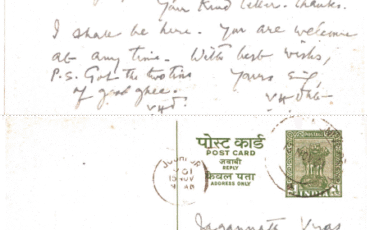 Your kind letter. Thanks.
I shall be here. You are welcome
at any time. With best wishes,
P.S. Got the two tins Yours
of good ghee.
पोस्ट कार्ड
POST CARD
जवाबी
REPLY
केवल पता
ADDRESS ONLY
INDIA
JODHPUR
Jagannath Vyas